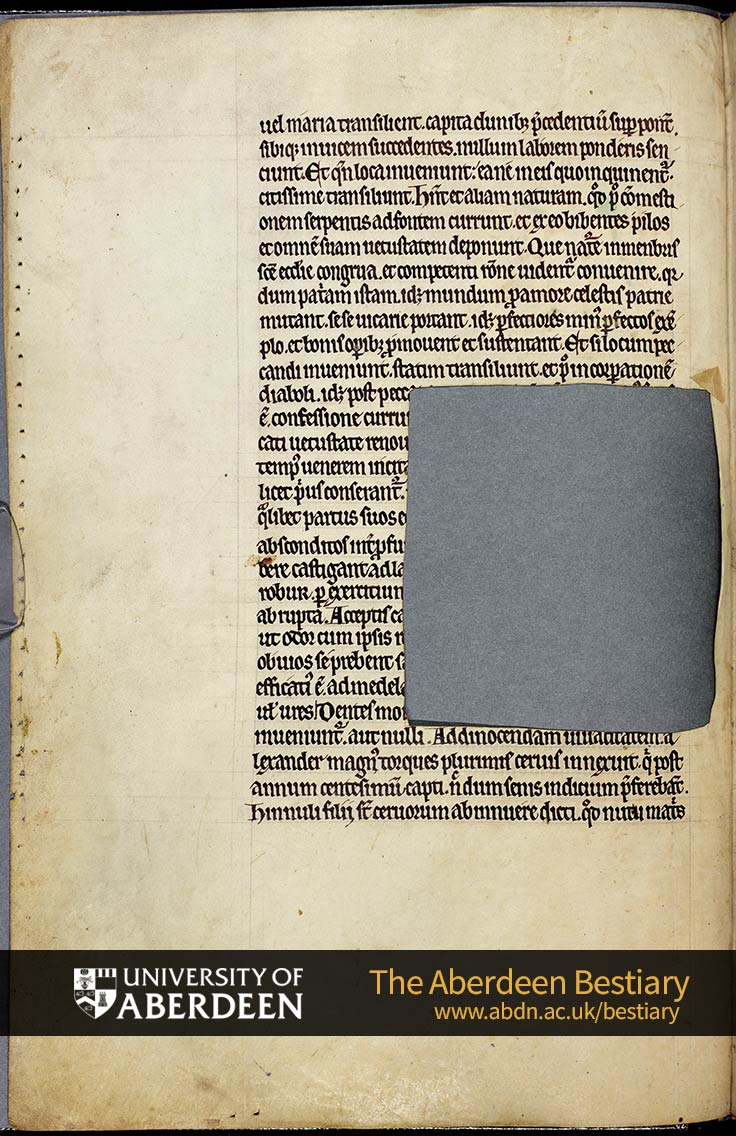 uel maria transilient. capita clunibꝫ p̄cedentiū suꝑponūt.
sibiqꝫ inuicem succedentes. nullum laborem ponderis sen
ciunt. Et qn̄ loca inuemunt: ea ne in eis quoinquinent᷑.
citissime transiliunt. Hn̄t et aliam naturam. qd̓ p̓ cōmesti
onem serpentis ad fontem currunt. et ex eo bibentes pilos
et omnē suam uetustatem deponunt. Que nat̄e in menbris
sc̄e eccl̓ie congrua. et competenti rōne uident᷑ conuenire. qr
dum pat̓am istam. idꝫ mundum ꝓ amore celestis patrie
mutant. sese uicarie portant. idꝫ ꝑfectiores min᷒ ꝑfectos exē
plo. et bonis oꝑibꝫ ꝓmouent et sustentant. Et si locum pec
candi inueniunt. statim transiliunt. et p̓ incorꝑationē
diaboli. idꝫ post pecc
ē. confessione curru
cati uetustate renou
temp᷒ uenerem incit
licet p̓us conserant᷑.
q̓libet partus suos e
absconditos int̓ ꝓfu
bere castigant ad la
robur. ꝑ exercitium
abrupta. Acceptis ca
ut odor cum ipsis
obuios se prebent
efficati᷒ ē. ad medela
ul̓ ures. Dentes mo
inueniunt᷑. aut nulli. Ad dinocendam uiuacitatem a
lexander magn᷒ torques plurimis ceruis innexuit. q̓ post
annum centesimū capti. n̄dum senis indicium p̄ferebāt.
Hinnuli filij st̄ ceruorum ab innuere dicti. qd̓ nutu mat̓s
UNIVERSITY OF
ABERDEEN
The Aberdeen Bestiary
www.abdn.ac.uk/bestiary